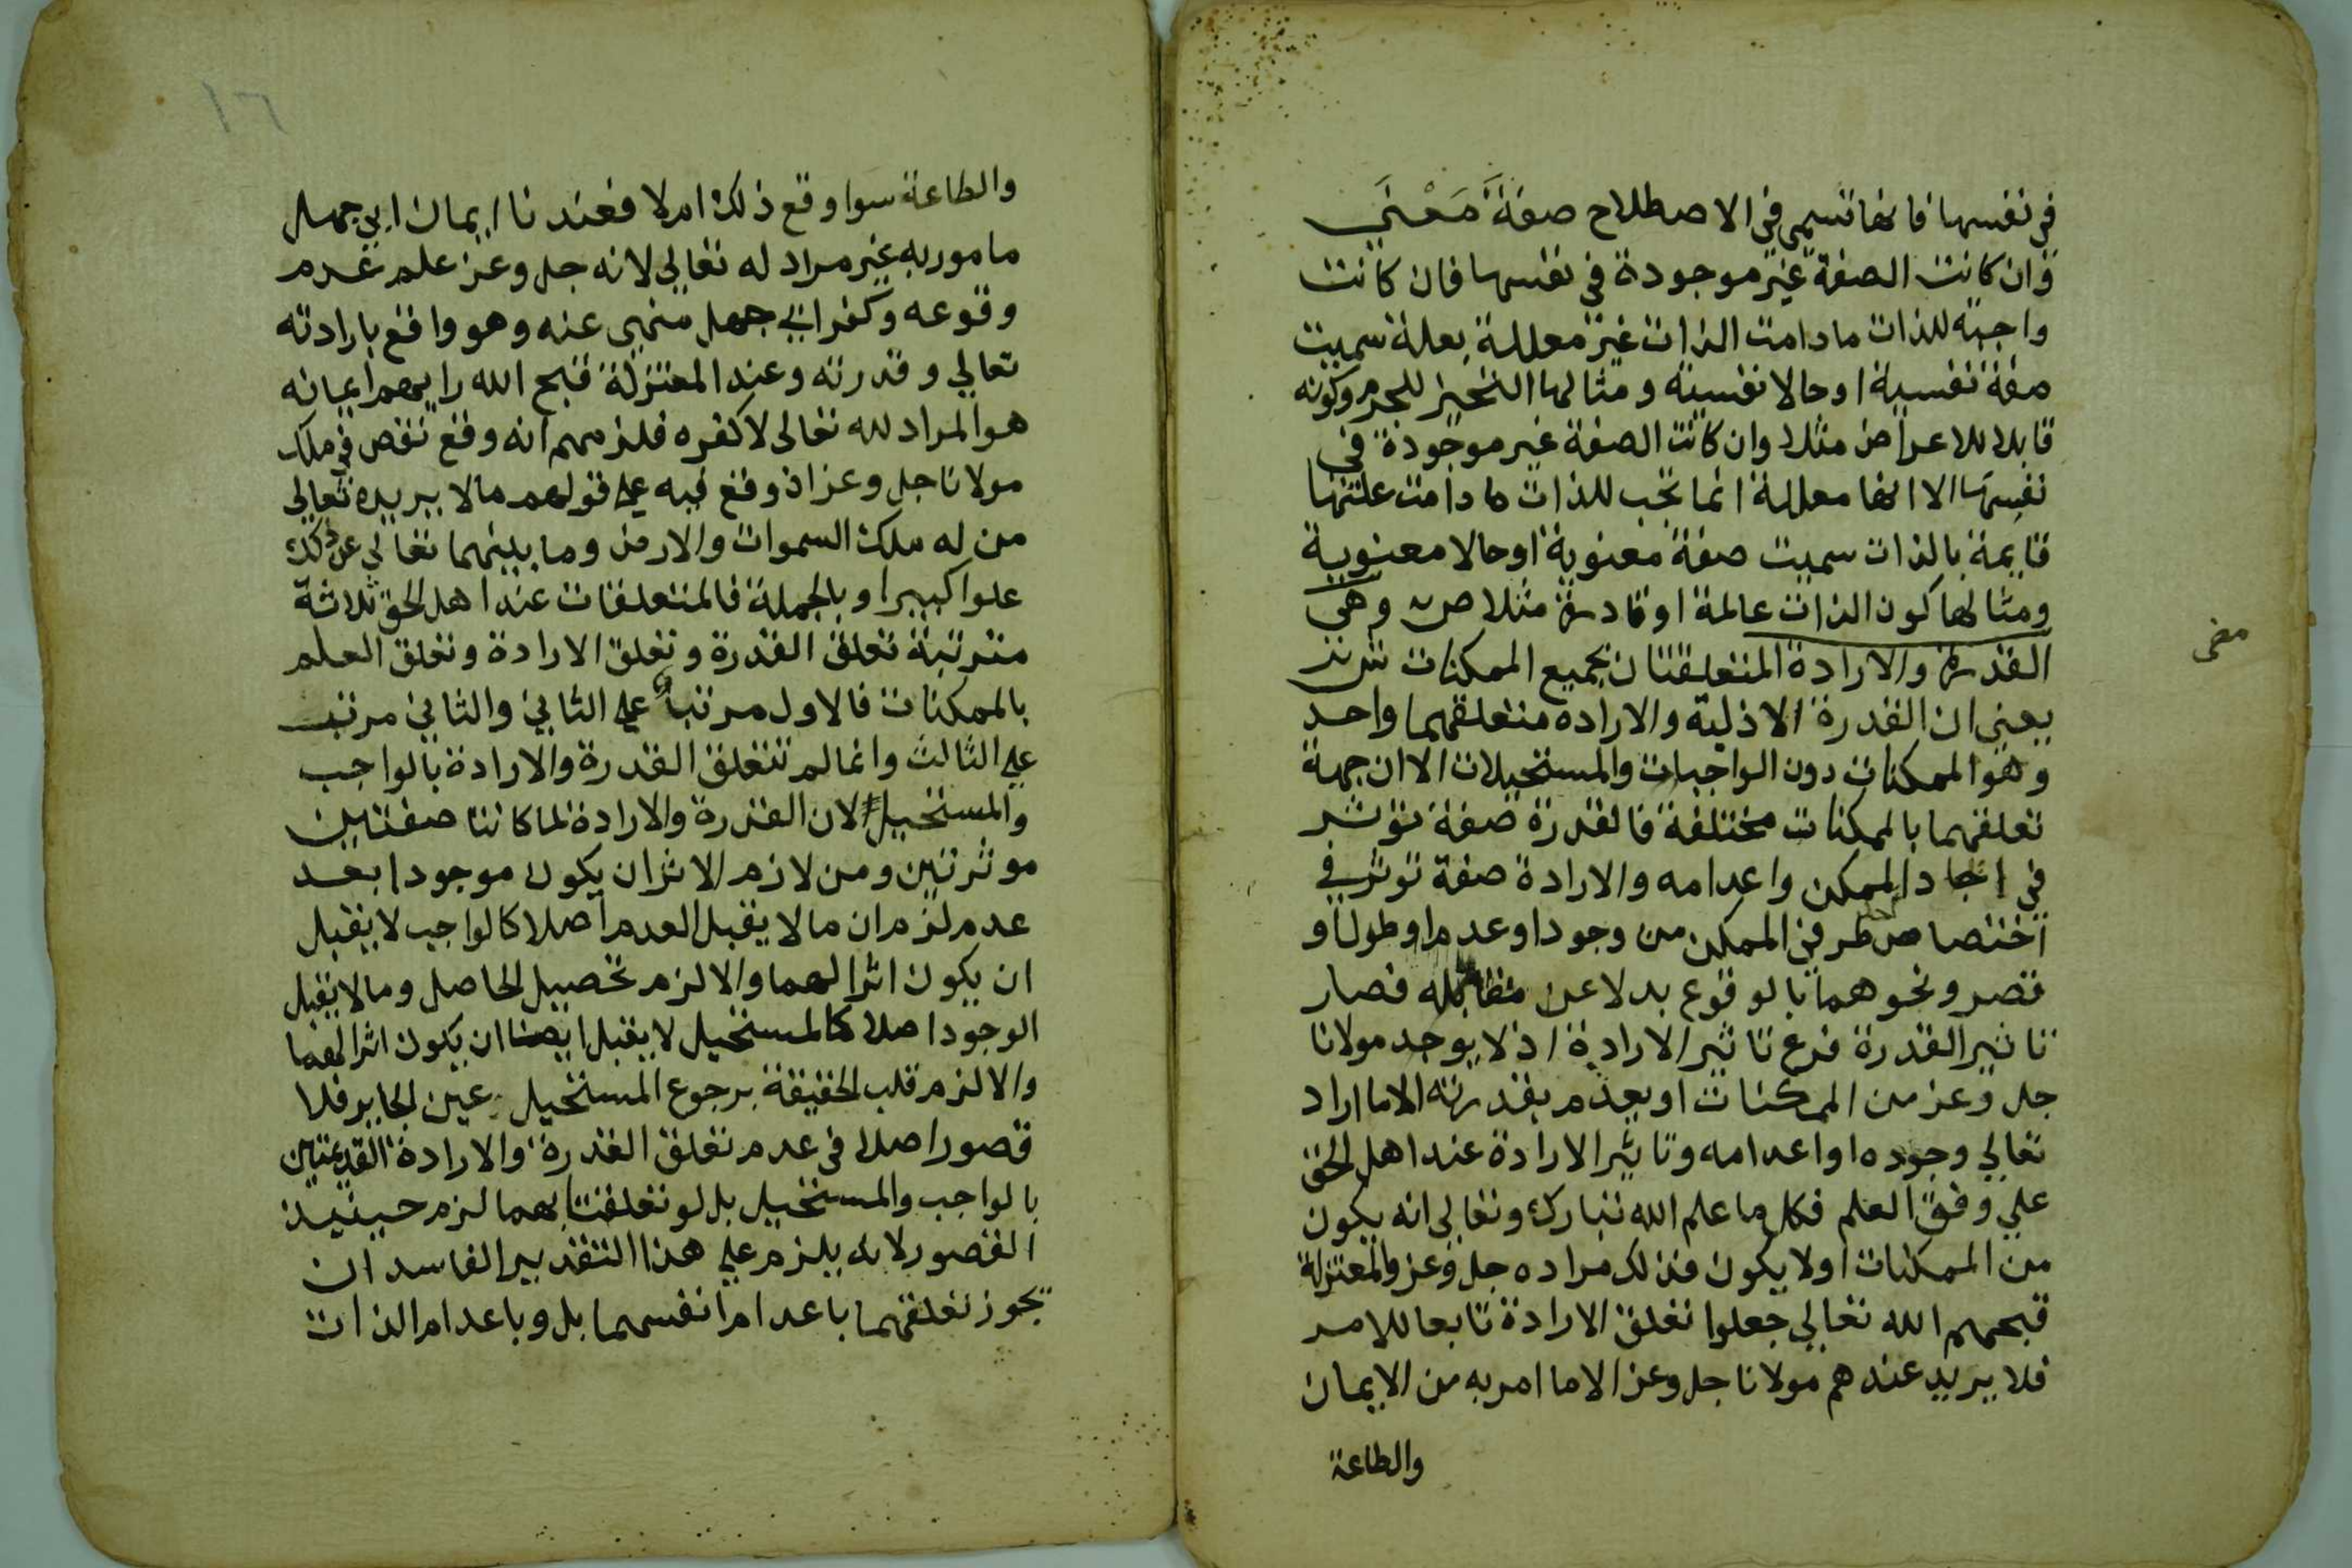 في نفسها فانها تسمى في الاصطلاح صفةَ مَعْنَي
وان كانت الصفة غير موجودة في نفسها فان كانت
واجبة للذات مادامت الذات غير معللة بعلة سميت
صفة نفسية او حالا نفسية ومثالها التحيز للجرم وكونه
قابلا للاعراض مثلا وان كانت الصفة غير موجودة في
نفسها الا انها معللة انما تجب للذات ما دامت علتها
قايمة بالذات سميت صفة معنوية او حالا معنوية
ومثالها كون الذات عالمة او قادرة مثلا ص وهي
القدرة والارادة المتعلقتان بجميع الممكنات ش
يعني ان القدرة الازلية والارادة متعلقهما واحد
وهو الممكنات دون الواجبات والمستحيلات الا ان جهة
تعلقهما بالممكنات مختلفة فالقدرة صفة توثر
في ايجاد الممكن واعدامه والارادة صفة توثر في
اختصاص طرفي الممكن من وجود او عدم او طول او
قصر ونحوهما بالوقوع بدلا عن مقابله فصار
تاثير القدرة فرع تاثير الارادة اذ لا يوجد مولانا
جل وعز من الممكنات او يعدم بقدرته الا ما اراد
تعالي وجوده او اعدامه وتاثير الارادة عند اهل الحق
علي وفق العلم فكل ما علم الله تبارك وتعالى انه يكون
من الممكنات اولا يكون فذلك مراده جل وعز والمعتزلة
قبحهم الله تعالي جعلوا تعلق الارادة تابعا للامر
فلا يريد عندهم مولانا جل وعز الا ما امر به من الايمان
والطاعة
١٦
والطاعة سوا وقع ذلك ام لا فعندنا ايمان ابي جهل
مامور به غير مراد له تعالي لانه جل وعز علم عدم
وقوعه وكفر ابي جهل منهى عنه وهو واقع بارادته
تعالي وقدرته وعند المعتزلة قبح الله رايهم ايمانه
هو المراد لله تعالى لا كفره فلزمهم انه وقع نقص في ملك
مولانا جل وعز اذ وقع فيه علي قولهم مالا يريده تعالي
من له ملك السموات والارض وما بينهما تعالي عن ذلك
علوا كبيرا وبالجملة فالمتعلقات عند اهل الحق ثلاثة
مترتبة تعلق القدرة وتعلق الارادة وتعلق العلم
بالممكنات فالاول مرتبا علي الثاني والثاني مرتب
علي الثالث وانما لم تتعلق القدرة والارادة بالواجب
والمستحيل لان القدرة والارادة لما كانتا صفتين
موثرتين ومن لازم الاثر ان يكون موجودا بعد
عدم لزم ان مالا يقبل العدم اصلا كالواجب لا يقبل
ان يكون اثرا لهما والا لزم تحصيل الحاصل ومالا يقبل
الوجود اصلا كالمستحيل لا يقبل ايضا ان يكون اثرا لهما
والا لزم قلب الحقيقة برجوع المستحيل عين الجايز فلا
قصور اصلا في عدم تعلق القدرة والارادة القديمتين
بالواجب والمستحيل بل لو تعلقتا بهما لزم حينيذ
القصور لانه يلزم علي هذا التقدير الفاسد ان
يجوز تعلقهما باعدام انفسهما بل وباعدام الذات